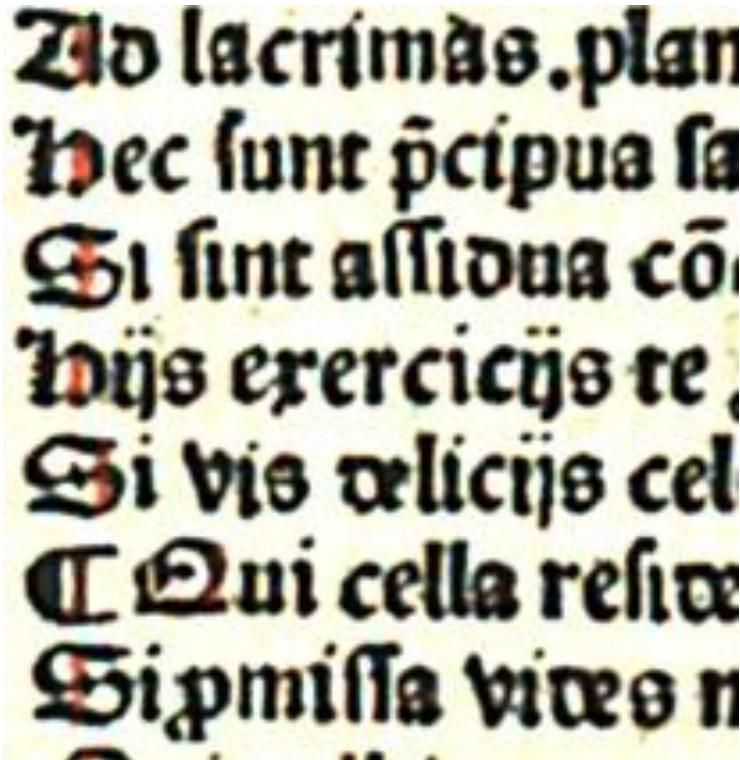 Ad lacrimas.plan
Hec ſunt p̄cipua ſa
Si ſint aſſidua cō
Hijs exercicijs te
Si vis delicijs cel
¶ Qui cella reſide
Si ꝓmiſſa vides n